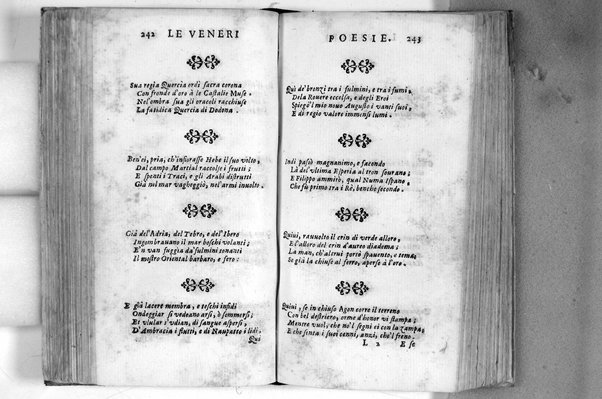 242 LE VENERI
Sua regia Quercia ordì sacra corona
Con fronde d'oro à le Castalie Muse
Nel'ombra sua gli oracoli racchiuse
La fatidica Quercia di Dodona.
Ben'ei, pria, ch'infiorasse Hebe il suo volto,
Dal campo Martial raccolse i frutti;
E spenti i Traci, e gli Arabi distrutti
Già nel mar vagheggiò, nel'armi involto.
Già del'Adria, del Tebro, e del'Ibero
Ingombrauano il mar boschi volanti;
E'n van fuggia da'fulmini tonanti
Il mostro Oriental barbaro, e fero:
E già lacere membra, e teschi infidi
Ondeggiar si vedeano arsi, ò sommersi;
Et vlular s'vdian, di sangue aspersi,
D'Ambracia i flutti, e di Naupatto i lidi.
Qui
POESIE. 243
Quì de'bronzi tra i fulmini, e tra i fumi,
Dela Rouere eccelsa, e degli Eroi
Spiegò'l mio nouo Augusto i vanti suoi,
E di regio valore immensi lumi.
Indi passò magnanimo, e facondo
Là del'vltima Esperia al tron sourano;
E Filippo ammirò, qual Numa Ispano,
Che fù primo tra i Rè, benche secondo.
Quiui, rauuolto il crin di verde alloro,
E l'alloro del crin d'aureo diadema;
La man, ch'altrui portò spauento, e tema,
Se già la chiuse al ferro, aperse à l'oro.
Quiui, se in chiuso Agon corre il terreno
Con bel destriero, orme d'honor vi stampa;
Mentre vuol, che no'l segni ei con la zampa,
E che senta i suoi cenni, anzi, che'l freno.
L 2 E se